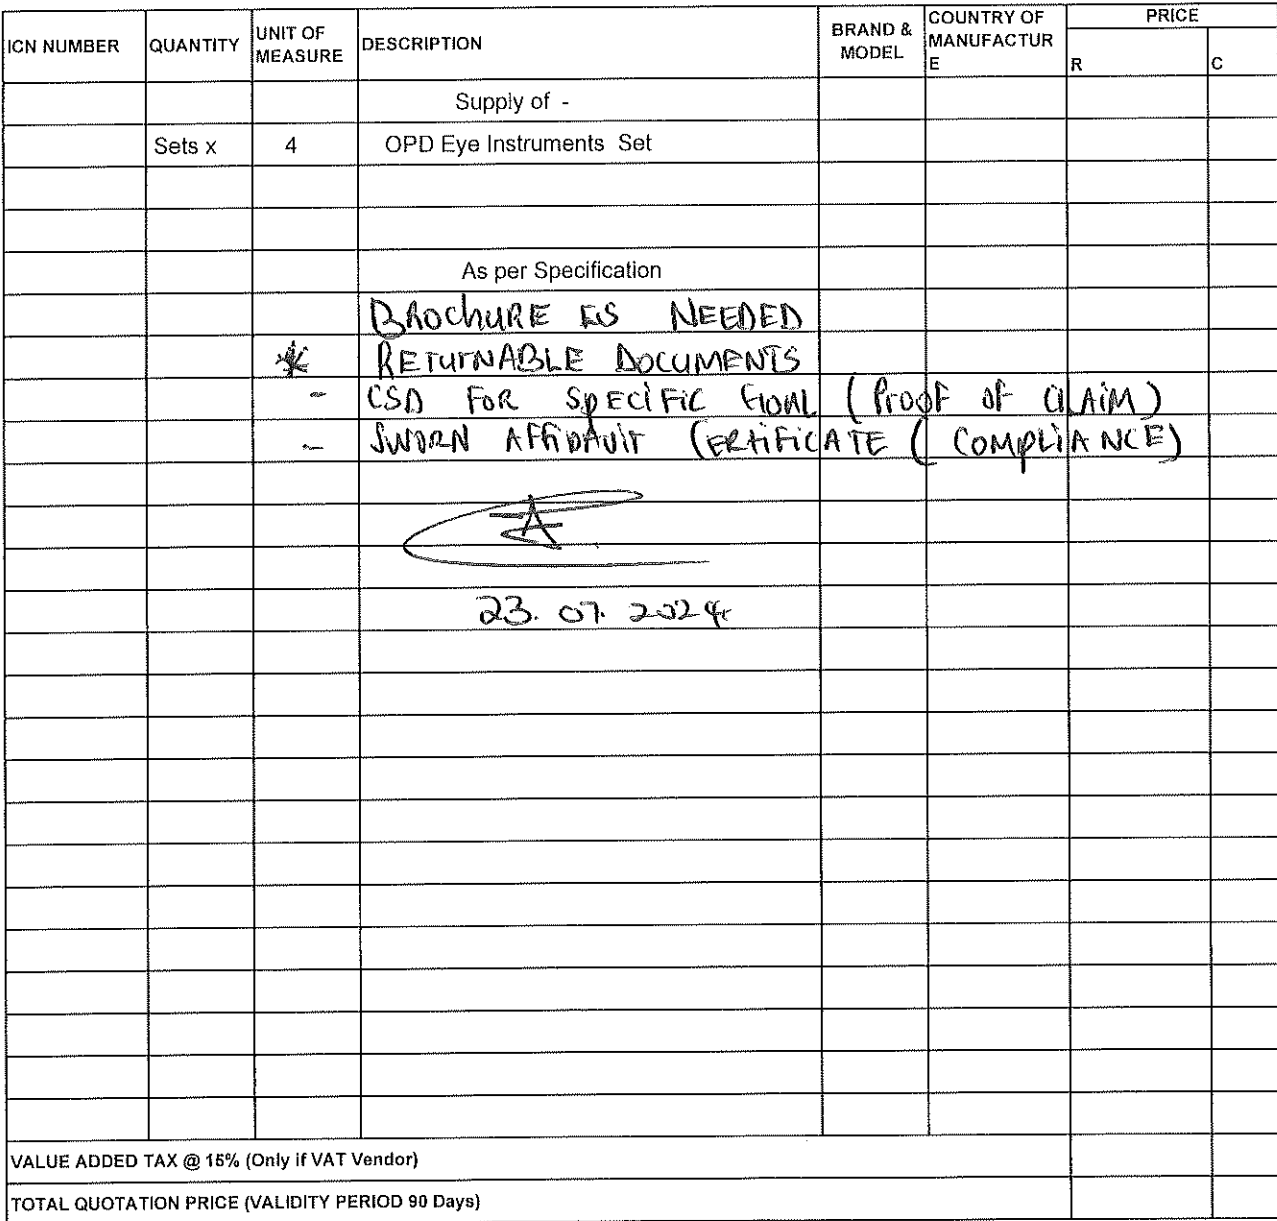 ICN NUMBER QUANTITY UNIT OF MEASURE DESCRIPTION BRAND & MODEL COUNTRY OF MANUFACTUR E PRICE R C
Supply of -
Sets x 4 OPD Eye Instruments Set
As per Specification
BROCHURE IS NEEDED
* RETURNABLE DOCUMENTS
- CSD FOR SPECIFIC GOAL (PROOF OF CLAIM)
- SWORN AFFIDAVIT CERTIFICATE (COMPLIANCE)
23.07.2024
VALUE ADDED TAX @ 15% (Only if VAT Vendor)
TOTAL QUOTATION PRICE (VALIDITY PERIOD 90 Days)